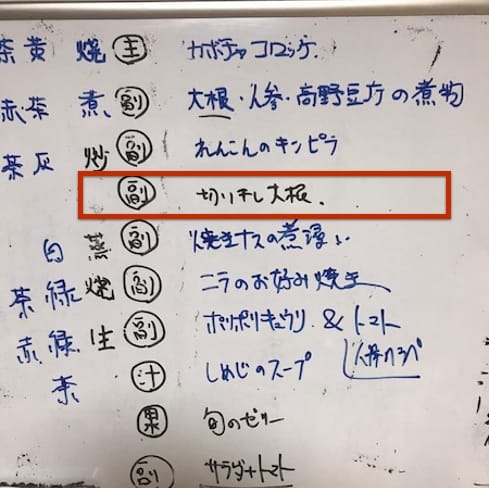 茶黄 焼 主 カボチャコロッケ.
赤・茶 煮 副 大根・人参・高野豆腐の煮物
茶灰 炒 副 れんこんのキンピラ
副 切り干し大根.
白 蒸 副 焼きナスの煮浸し
茶緑 焼 副 ニラのお好み焼き
赤緑 生 副 ポリポリキュウリ & トマト
茶 汁 しめじのスープ
果 旬のゼリー
副 サラダ+トマト